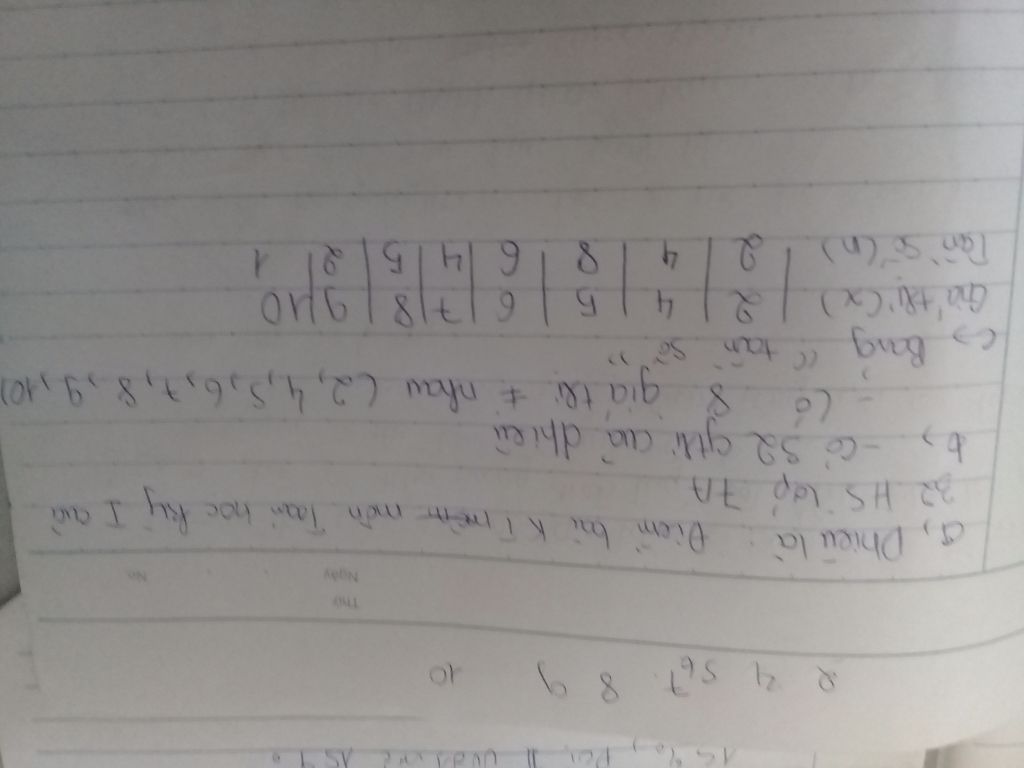 2 4 5 6 7 8 9 10
Thứ
Ngày No.
a, D/hiệu là: Điểm bài KT môn Toán học kỳ I của
32 HS lớp 7A
b, - Có 32 gtrị của dhiệu
- Có 8 giá trị ≠ nhau (2, 4, 5, 6, 7, 8, 9, 10)
c, Bảng "tần số"
Giá trị (x) | 2 | 4 | 5 | 6 | 7 | 8 | 9 | 10
Tần số (n) | 2 | 4 | 8 | 6 | 4 | 5 | 2 | 1